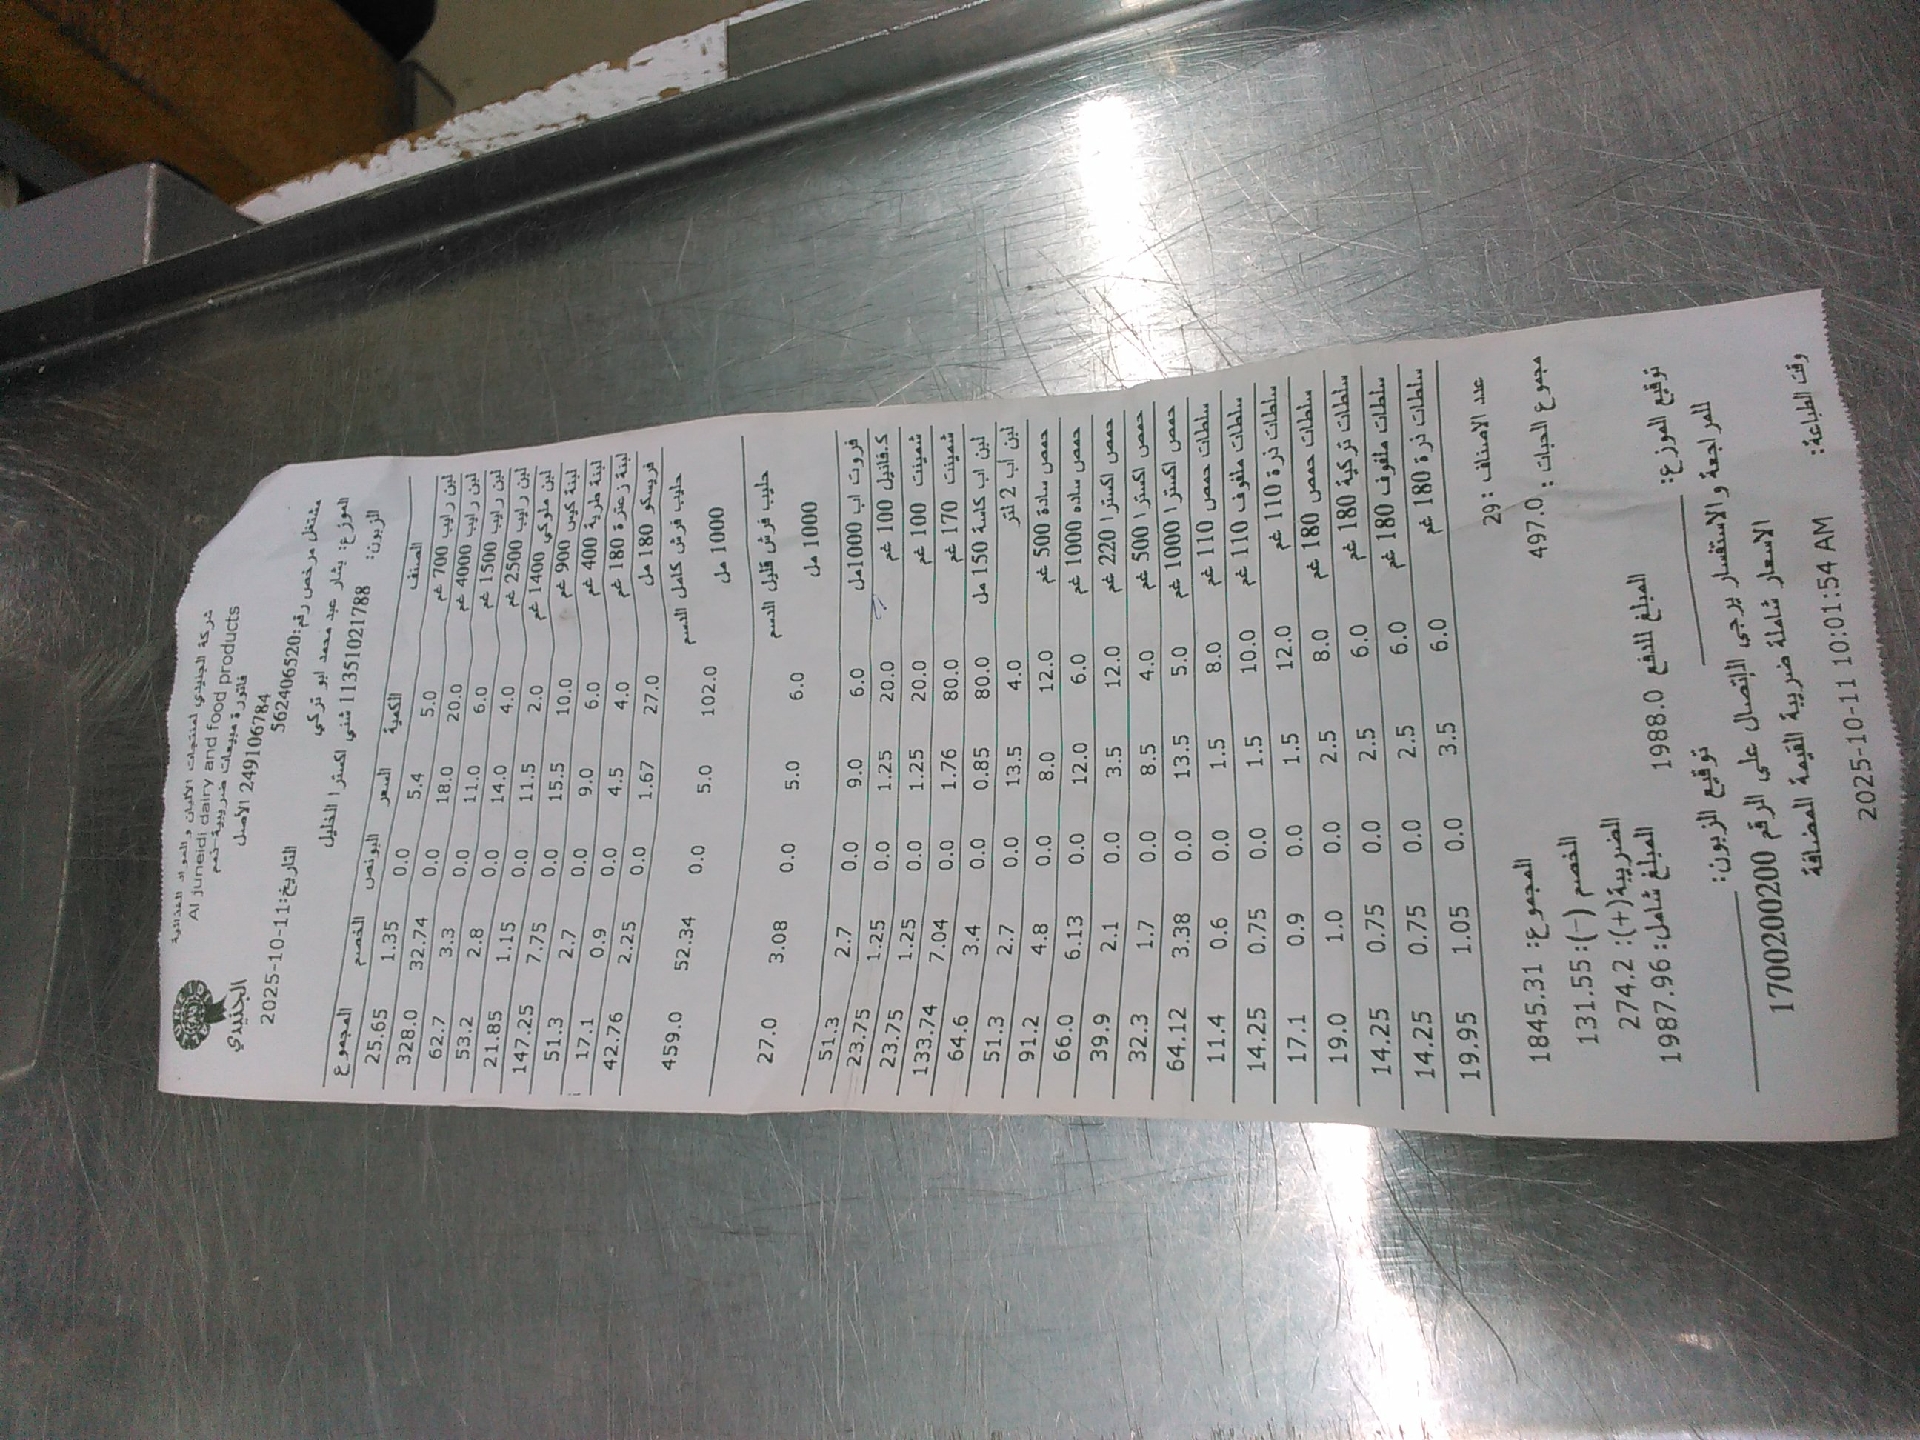 الجنيدي
شركة الجنيدي لمنتجات الألبان و المواد الغذائية
Al juneidi dairy and food products
فاتورة مبيعات ضريبية-ذمم
2491106784 الأصل
التاريخ:11-10-2025 562406520
مشتغل مرخص رقم:562406520
الموزع: بشار عبد محمد ابو تركي
الزبون: 11351021788 شني اكسترا الخليل
الصنف الكمية السعر البونص الخصم المجموع
لبن رايب 700 غم 5.0 5.4 0.0 1.35 25.65
لبن رايب 4000 غم 20.0 18.0 0.0 32.74 328.0
لبن رايب 1500 غم 6.0 11.0 0.0 3.3 62.7
لبن رايب 2500 غم 4.0 14.0 0.0 2.8 53.2
لبن ملوكي 1400 غم 2.0 11.5 0.0 1.15 21.85
لبنة كيس 900 غم 10.0 15.5 0.0 7.75 147.25
لبنة طرية 400 غم 6.0 9.0 0.0 2.7 51.3
لبنة زعترة 180 غم 4.0 4.5 0.0 0.9 17.1
فريسكو 180 مل 27.0 1.67 0.0 2.25 42.76
حليب فرش كامل الدسم 1000 مل 102.0 5.0 0.0 52.34 459.0
حليب فرش قليل الدسم 1000 مل 6.0 5.0 0.0 3.08 27.0
فروت اب 1000مل 6.0 9.0 0.0 2.7 51.3
ك.فانيل 100 غم 20.0 1.25 0.0 1.25 23.75
شمينت 100 غم 20.0 1.25 0.0 1.25 23.75
شمينت 170 غم 80.0 1.76 0.0 7.04 133.74
لبن اب كاسة 150 مل 80.0 0.85 0.0 3.4 64.6
لبن اب 2 لتر 4.0 13.5 0.0 2.7 51.3
حمص سادة 500 غم 12.0 8.0 0.0 4.8 91.2
حمص ساده 1000 غم 6.0 12.0 0.0 6.13 66.0
حمص اكسترا 220 غم 12.0 3.5 0.0 2.1 39.9
حمص اكسترا 500 غم 4.0 8.5 0.0 1.7 32.3
حمص اكسترا 1000 غم 5.0 13.5 0.0 3.38 64.12
سلطات حمص 110 غم 8.0 1.5 0.0 0.6 11.4
سلطات ملفوف 110 غم 10.0 1.5 0.0 0.75 14.25
سلطات ذرة 110 غم 12.0 1.5 0.0 0.9 17.1
سلطات حمص 180 غم 8.0 2.5 0.0 1.0 19.0
سلطات تركية 180 غم 6.0 2.5 0.0 0.75 14.25
سلطات ملفوف 180 غم 6.0 2.5 0.0 0.75 14.25
سلطات ذرة 180 غم 6.0 3.5 0.0 1.05 19.95
عدد الاصناف :29
مجموع الحبات : 497.0 المجموع: 1845.31
الخصم (-):131.55
الضريبة(+): 274.2
المبلغ للدفع 1988.0 المبلغ شامل: 1987.96
توقيع الموزع: توقيع الزبون:
للمراجعة و الاستفسار يرجى الاتصال على الرقم 1700200200
الاسعار شاملة ضريبة القيمة المضافة
وقت الطباعة: 2025-10-11 10:01:54 AM